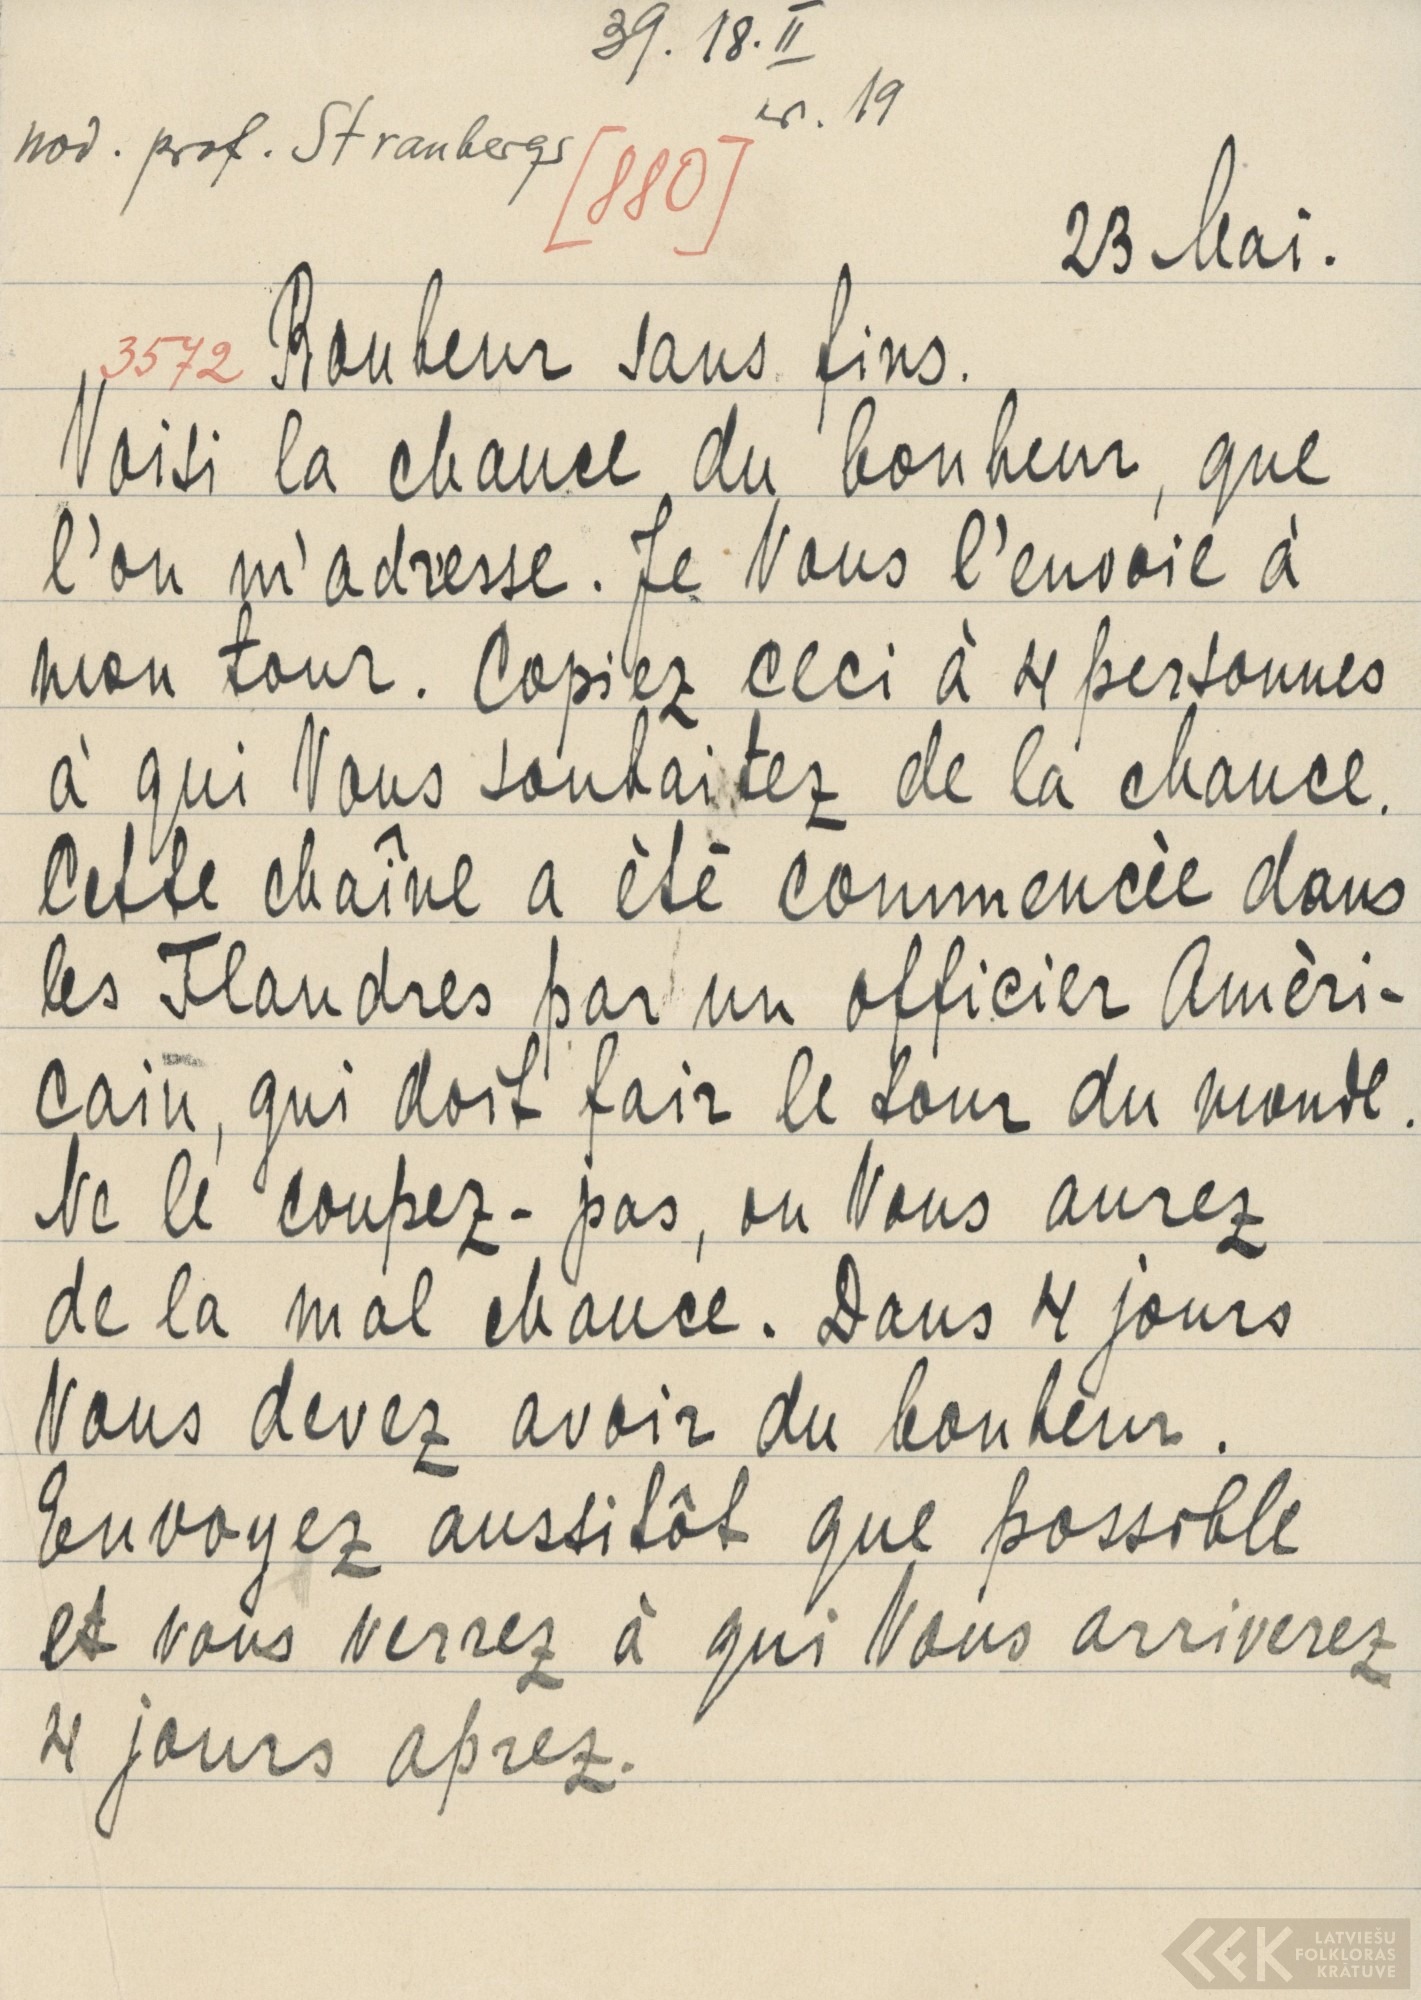 39. 18. II
nr. 19
nod. prof. Straubergs
[880]
23 Mai.
3572 Bonheur sans fins.
Voisi la chance du bonheur, que
l'on m'adresse. Je Vous l'envoie à
mon tour. Copiez ceci à 4 personnes
à qui Vous souhaitez de la chance.
Cette chaîne a ètè commencèe dans
les Flandres par un officier Amèri-
cain, qui doit fair le tour du monde.
Ne le coupez-pas, ou Vous aurez
de la mal chance. Dans 4 jours
Vous devez avoir du bonheur.
Envoyez aussitôt que possible
et vous verrez à qui Vous arriverez
4 jours aprez.
LATVIEŠU
FOLKLORAS
KRĀTUVE